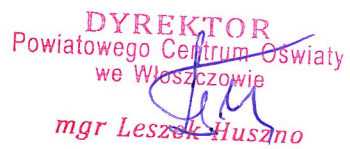 DYREKTOR
Powiatowego Centrum Oświaty
we Włoszczowie
mgr Leszek Huszno